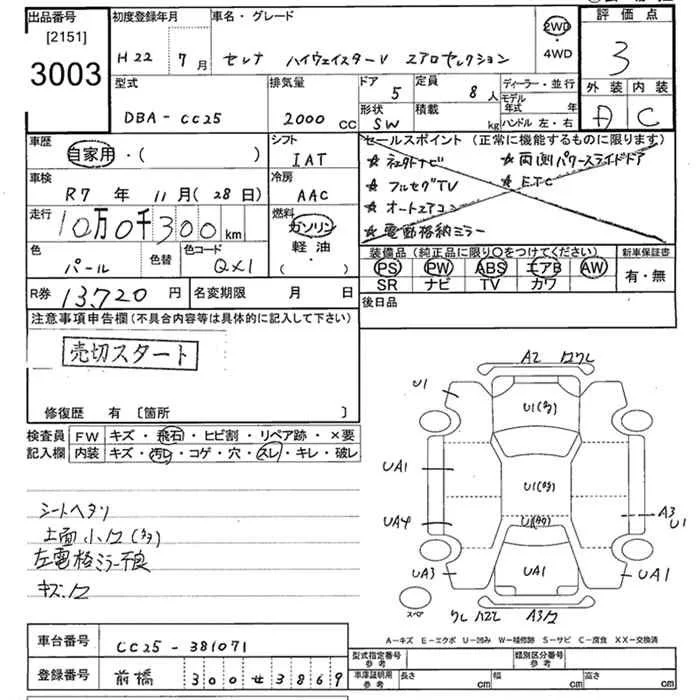 出品番号
[2151]
3003
初度登録年月
H22 7月
車名・グレード
セレナ ハイウェイスターV エアロセレクション
2WD
・
4WD
評価点
3
外装 内装
A C
型式
DBA-CC25
排気量
2000 cc
ドア
5
定員
8人
形状
SW
積載
kg
ディーラー・並行
モデル年式 年
ハンドル 左・右
車歴
自家用・( )
シフト
IAT
車検
R7年 11月(28日)
冷房
AAC
走行
10万0千300km
燃料
ガソリン
軽油
( )
色
パール
色替
色コード
QX1
R券 13,720円
名変期限 月 日
セールスポイント(正常に機能するものに限ります)
☆ 両側パワースライドドア
☆フルセグTV ☆ETC
☆オートエアコン
☆電動格納ミラー
装備品(純正品に限り○をつけてください)
PS PW ABS エアB AW
SR ナビ TV カワ
新車保証書
有・無
後日品
注意事項申告欄(不具合内容等は具体的に記入して下さい)
売切スタート
修復歴 有 [箇所 ]
検査員記入欄
FW キズ・飛石・ヒビ割・リペア跡・×要
内装 キズ・汚レ・コゲ・穴・スレ・キレ・破レ
シートヘタリ
左電格ミラー不良
A2
U1
U1(多)
UA1
U1(多)
A3
U1
UA4
U1(多)
UA3
UA1
UA1
スペア
A-キズ E-エクボ U-凹み W-補修跡 S-サビ C-腐食 XX-交換済
車台番号 CC25-381071
登録番号 前橋 300せ3869
型式指定番号
参考
類別区分番号
参考
車庫証明用
参考
長さ cm
幅 cm
高さ cm